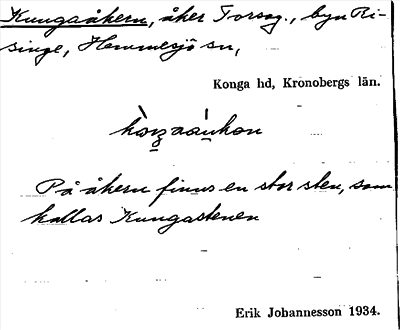 Kungaåkern, åker Torsag., byn Ri-
singe, Hemmesjö sn,
Konga hd, Kronobergs län.
På åkern finns en stor sten, som
kallas Kungastenen
Erik Johannesson 1934.